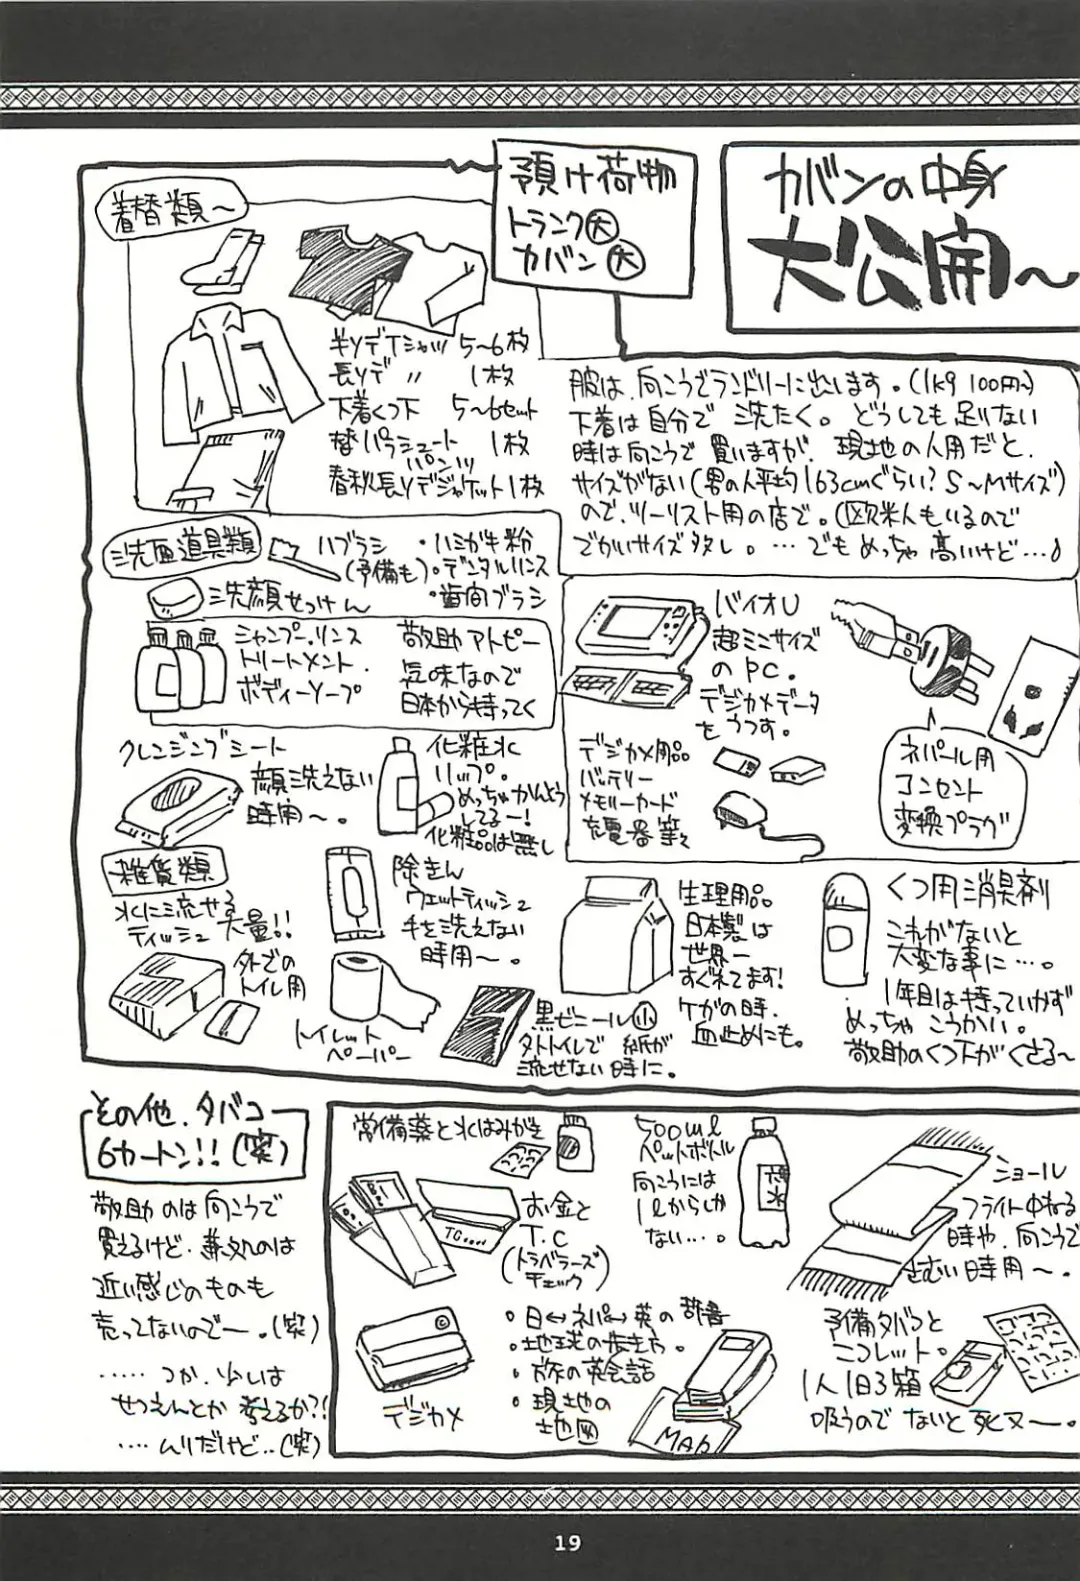 カバンの中身
大公開〜
預け荷物
トランク大
カバン大
着替類〜
半ソデTシャツ 5〜6枚
長ソデ 〃 1枚
下着くつ下 5〜6セット
替パラシュート 1枚
パンツ
春秋長ソデジャケット1枚
服は、向こうでランドリーに出します。(1kg 100円〜)
下着は自分で 洗たく。どうしても足りない
時は向こうで 買いますが、現地の人用だと、
サイズがない(男の人平均163cmぐらい?S〜Mサイズ)
ので、ツーリスト用の店で。(欧米人もいるので
でかいサイズ多し。…でもめっちゃ高いけど…♪
洗面道具類
ハブラシ ・ハミガキ粉
(予備も)・デンタルリンス
・歯間ブラシ
洗顔せっけん
シャンプー、リンス
トリートメント、
ボディーソープ
敬助アトピー
気味なので
日本から持ってく
クレンジングシート
顔洗えない
時用〜。
化粧水
リップ。
めっちゃかんよう
してるー!
化粧品は無し
バイオU
超ミニサイズ
のPC。
デジカメデータ
をうつす。
デジカメ用品
バッテリー
メモリーカード
充電器等々
ネパール用
コンセント
変換プラグ
雑貨類
水に流せる
ティッシュ 大量!!
外での
トイレ用
除きん
ウェットティッシュ
手を洗えない
時用〜。
トイレット
ペーパー
黒ビニール小
外トイレで 紙が
流せない時に。
生理用品
日本製は
世界一
すぐれてます!
ケガの時、
血止めにも。
くつ用消臭剤
これがないと
大変な事に…。
1年目は持っていかず
めっちゃ こうかい。
敬助のくつ下がくさる〜
その他、タバコ
6カートン!!(笑)
敬助のは向こうで
買えるけど、兼処のは
近い感じのものも
売ってないのでー。(笑)
…… つか、少しは
せつえんとか考えるか?!
…・ムリだけど‥(笑)
常備薬と水はみがき
お金と
T.C
(トラベラーズ
チェック)
TC
500ml
ペットボトル
向こうには
1lからしか
ない…。
水
ショール
フライト中ねる
時や、向こうで
さむい時用〜。
デジカメ
・日↔ネパ↔英の辞書
・地球の歩き方。
・旅の英会話
・現地の
地図
MAP
予備タバコと
ニコレット。
1人1日3箱
吸うので ないと死ヌ〜。
19